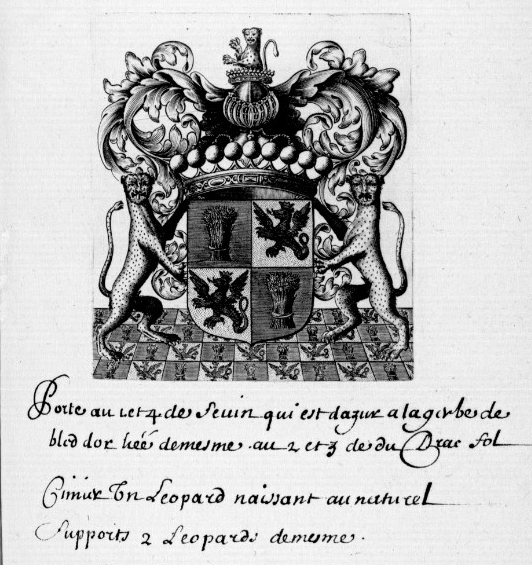 Porte au 1 et 4 de Sevin qui est dazur a la girbe de
bled dor lieé demesme au 2 et 3 de du Drac fol
Cimier Un Leopard naissant au naturel
Supports 2 Leopards demesme.